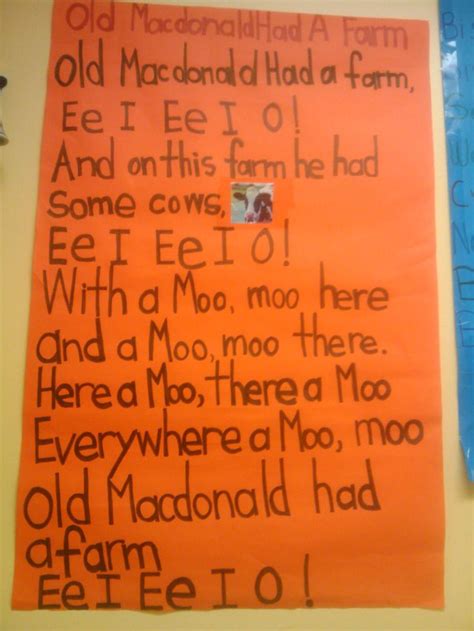 Old Macdonald Had A Farm
Old Macdonald Had a farm,
Ee I Ee I O!
And on this farm he had
Some cows,
Ee I Ee I O!
With a Moo, moo here
and a Moo, moo there.
Here a Moo, there a Moo
Everywhere a Moo, moo
Old Macdonald had
a farm
Ee I Ee I O!